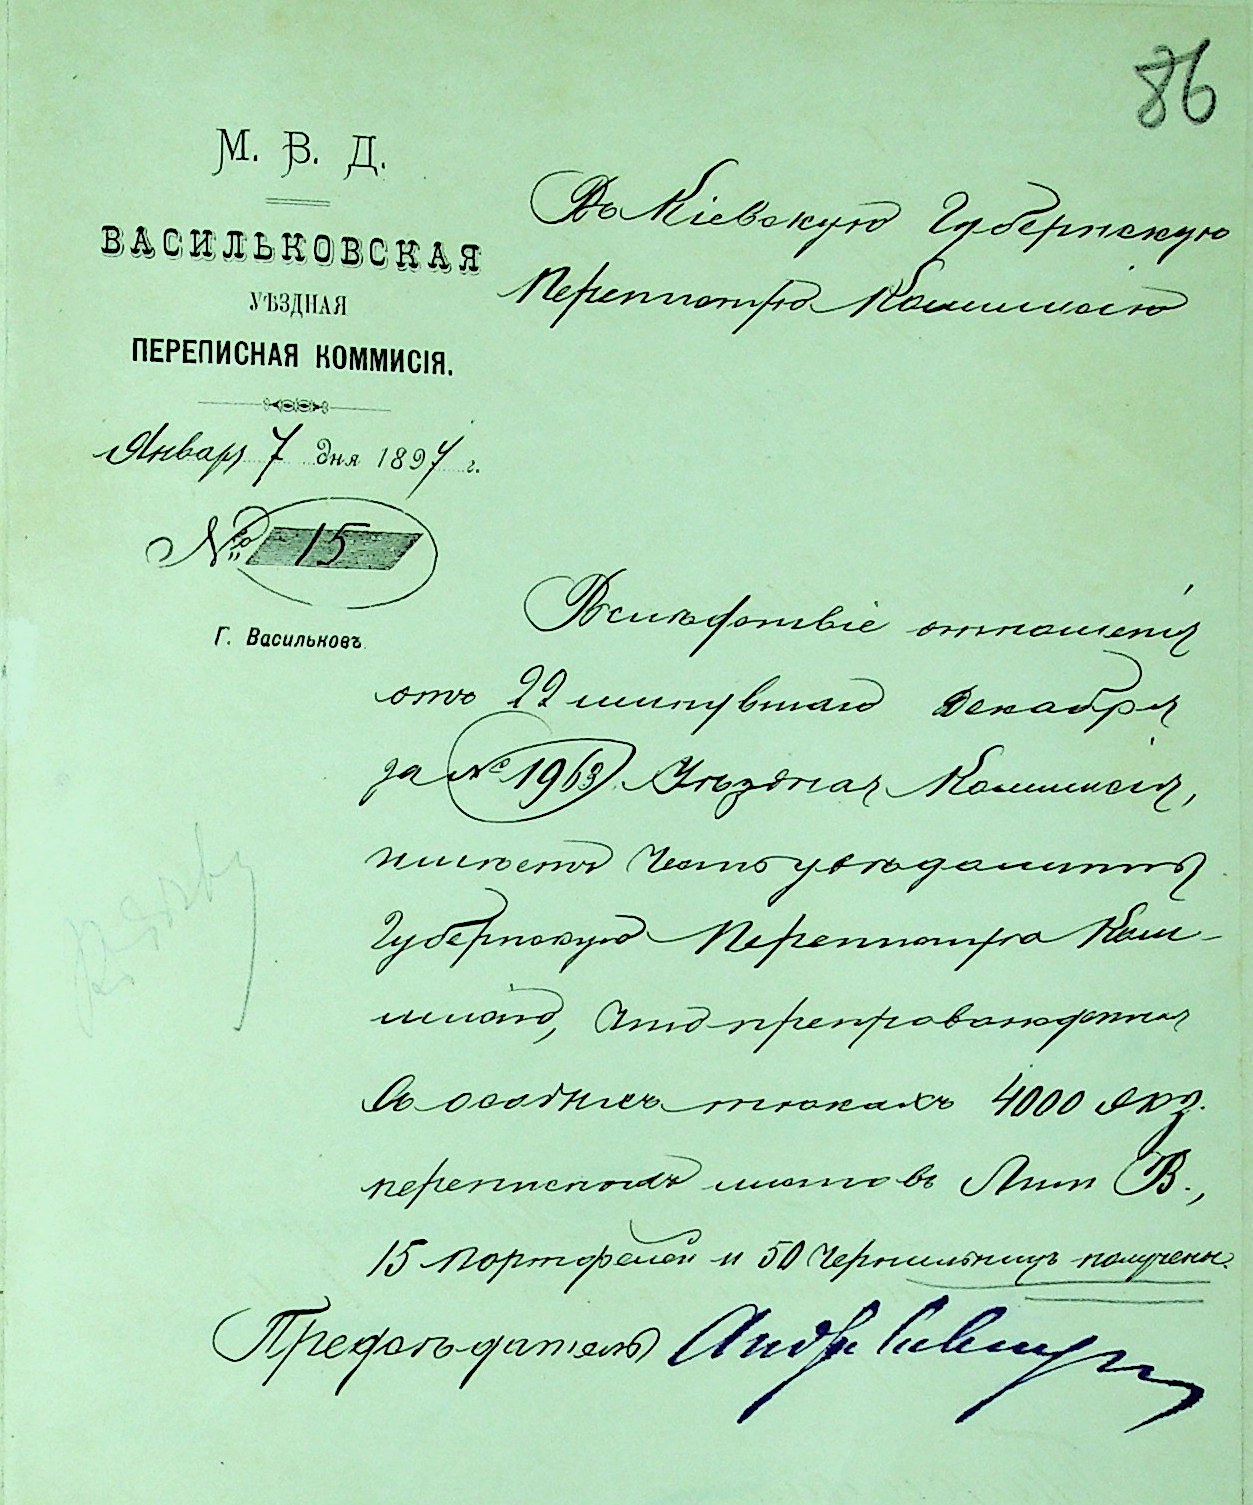 86
М. В. Д.
ВАСИЛЬКОВСКАЯ
УѢЗДНАЯ
ПЕРЕПИСНАЯ КОММИСІЯ.
Январ 7 дня 1897 г.
№ 15
Г. Васильковъ.
Въ Кіевскую Губернскую
Переписную Коммисію
Вслѣдствіе отношенія
отъ 22 минувшаго Декабря
за № 1963 Уѣздная Коммисія,
имѣетъ честь увѣдомить
Губернскую Переписную Ком-
мисію, что препровожденныя
въ особыхъ тюкахъ 4000 экз.
переписныхъ листовъ Лит В.,
15 портфелей и 50 чернильницъ получены.
Предсѣдатель